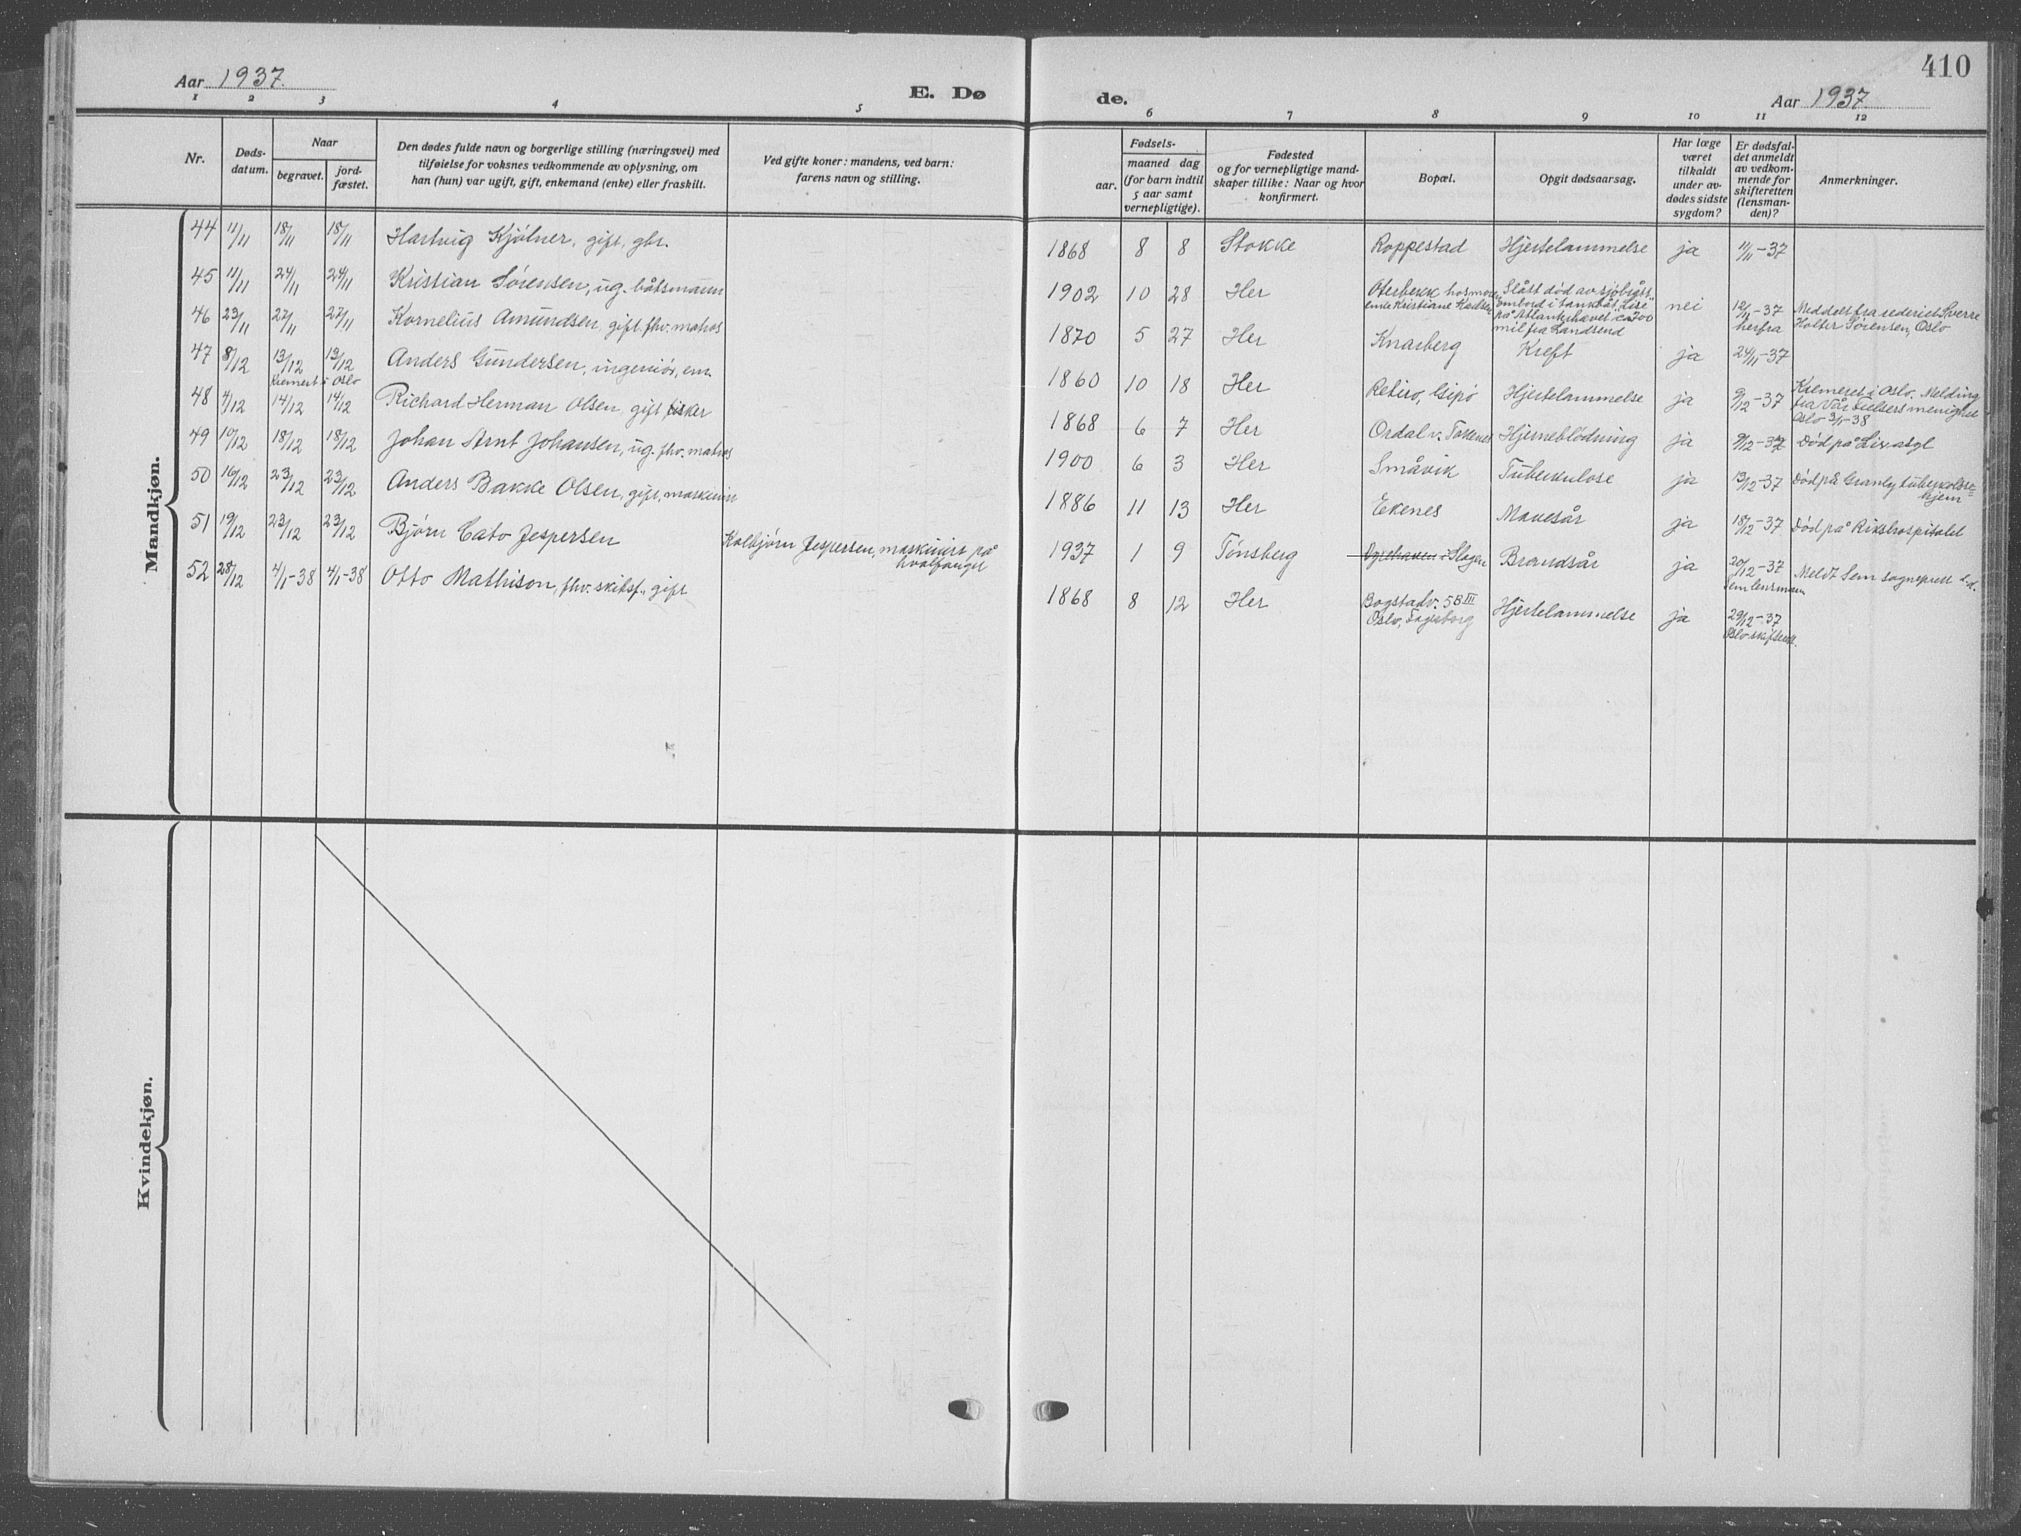 410
Aar 1937. E. Dø de. Aar 1937.
1 2 3 4 5 6 7 8 9 10 11 12
Nr.
Døds-
datum.
Naar
begravet.
jord-
fæstet.
Den dødes fulde navn og borgerlige stilling (næringsvei) med
tilføielse for voksnes vedkommende av oplysning, om
han (hun) var ugift, gift, enkemand (enke) eller fraskilt.
Ved gifte koner: mandens, ved barn:
farens navn og stilling.
Fødsels-
aar.
maaned dag
(for barn indtil
5 aar samt
vernepligtige).
Fødested
og for vernepligtige mand-
skaper tillike: Naar og hvor
konfirmert.
Bopæl.
Opgit dødsaarsag.
Har læge
været
tilkaldt
under av-
dødes sidste
sygdom?
Er dødsfal-
det anmeldt
av vedkom-
mende for
skifteretten
(lensman-
den)?
Anmerkninger.
Mandkjøn.
44 11/11 18/11 18/11 Hartvig Kjølner, gift, gbr. 1868 8 8 Stokke Roppestad Hjertelammelse ja 11/11-37
45 11/11 24/11 24/11 Kristian Sørensen, ug. båtsmann 1902 10 28 Her Oterbekk hos mor
enke Kristiane Karlsen
Slått død av sjøbrått
ombord i tankbåt "Lise"
på Atlanterhavet ca 700
mil fra Landsend
nei 12/11-37
herfra
Meddelt fra rederiet Sverre
Holter Sørensen, Oslo
46 23/11 27/11 27/11 Kornelius Amundsen, gift fhv. matros 1870 5 27 Her Knarberg Kreft ja 24/11-37
47 8/12 13/12 13/12 Anders Gundersen, ingeniør, em. 1860 10 18 Her Retiro, Gipø Hjertelammelse ja 9/12-37
Kremert i Oslo
Kremeret i Oslo. Melding
fra Vår Frelsers menighet
Oslo 3/1-38
48 9/12 14/12 14/12 Richard Herman Olsen, gift fisker 1868 6 7 Her Ordal v. Tokenes Hjerneblødning ja 9/12-37 Død på
49 10/12 18/12 18/12 Johan Arnt Johansen, ug. fhv. matros 1900 6 3 Her Småvik Tuberkulose ja 13/12-37 Død på Granly tuberkulose=
hjem
50 16/12 23/12 23/12 Anders Bakke Olsen, gift, maskinist 1886 11 13 Her Ekenes Mavesår ja 18/12-37 Død på Rikshospitalet
51 19/12 23/12 23/12 Bjørn Cato Jespersen Kolbjørn Jespersen, maskinist på
hvalfanget
1937 1 9 Tønsberg Slagen Brandsår ja 20/12-37
Sem lensmann
Meldt Sem sogneprest s.d.
52 28/12 4/1-38 4/1-38 Otto Mathison, fhv. skibsf., gift 1868 8 12 Her Bogstadv. 58 III
Oslo, Fagerborg
Hjertelammelse ja 29/12-37
Oslo skifterett.
Kvindekjøn.